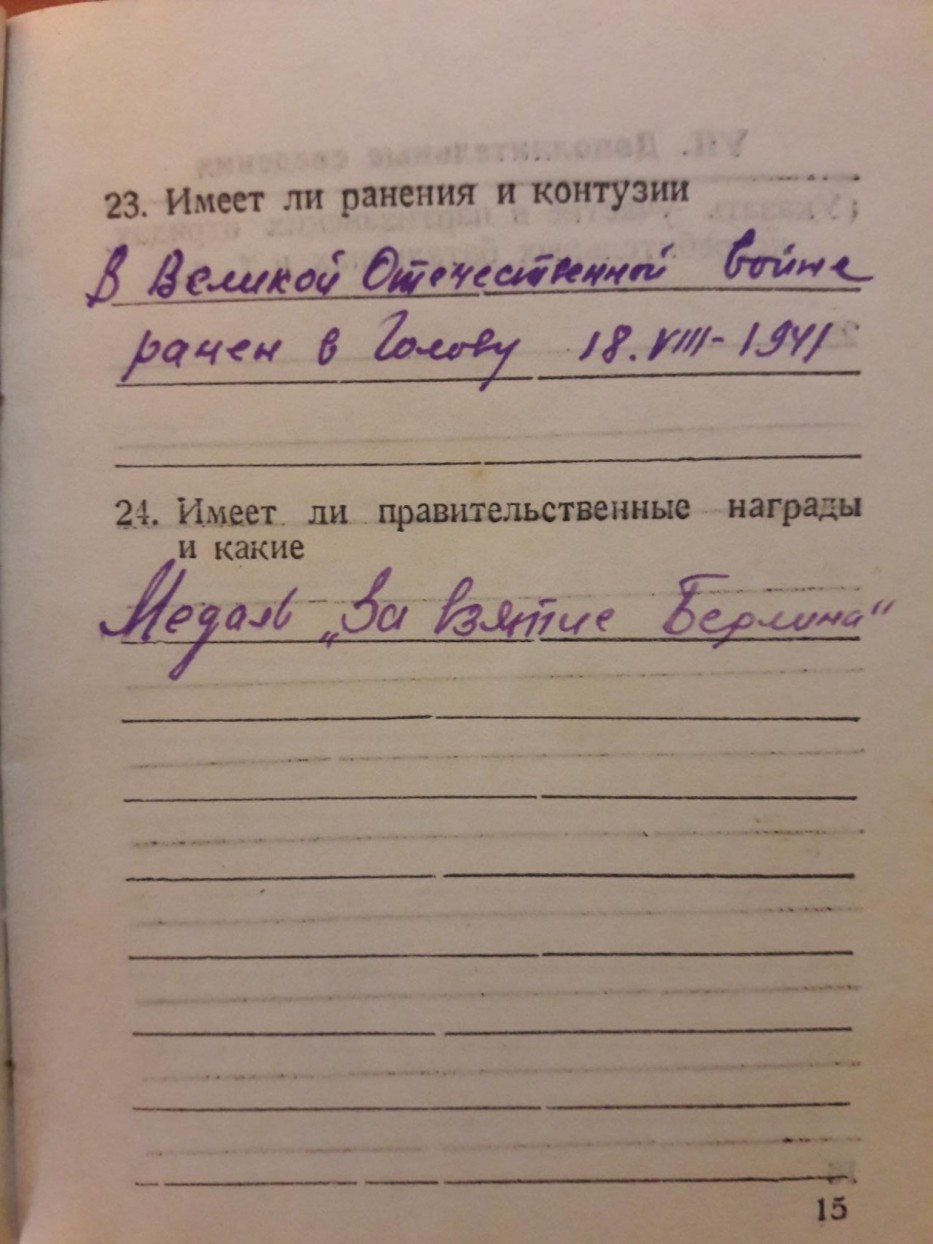 23. Имеет ли ранения и контузии
В Великой Отечественной войне
ранен в Голову 18.VIII-1941
24. Имеет ли правительственные награды
и какие
Медаль „За Взятие Берлина"
15